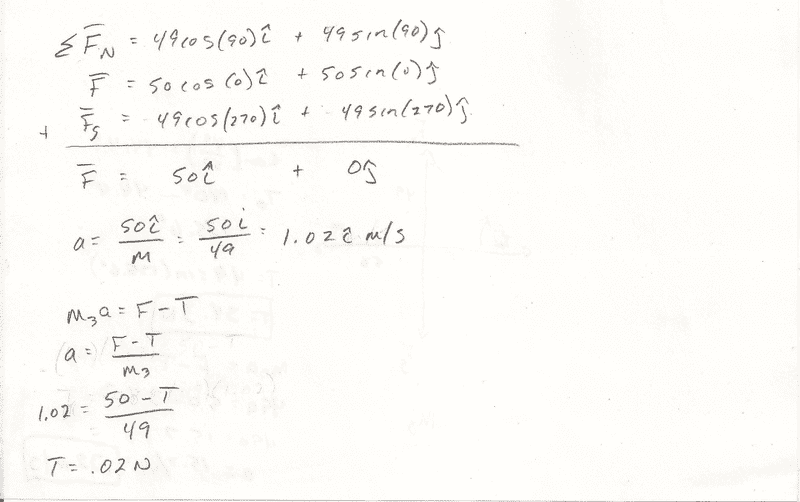 Σ F̅_N = 49cos(90)î + 49sin(90)ĵ
F̅ = 50cos(0)î + 50sin(0)ĵ
+ F̅_g = 49cos(270)î + 49sin(270)ĵ
F̅ = 50î + 0ĵ
a = 50î/M = 50i/49 = 1.02î m/s
m₃a = F - T
a = (F - T)/m₃
1.02 = (50 - T)/49
T = .02 N